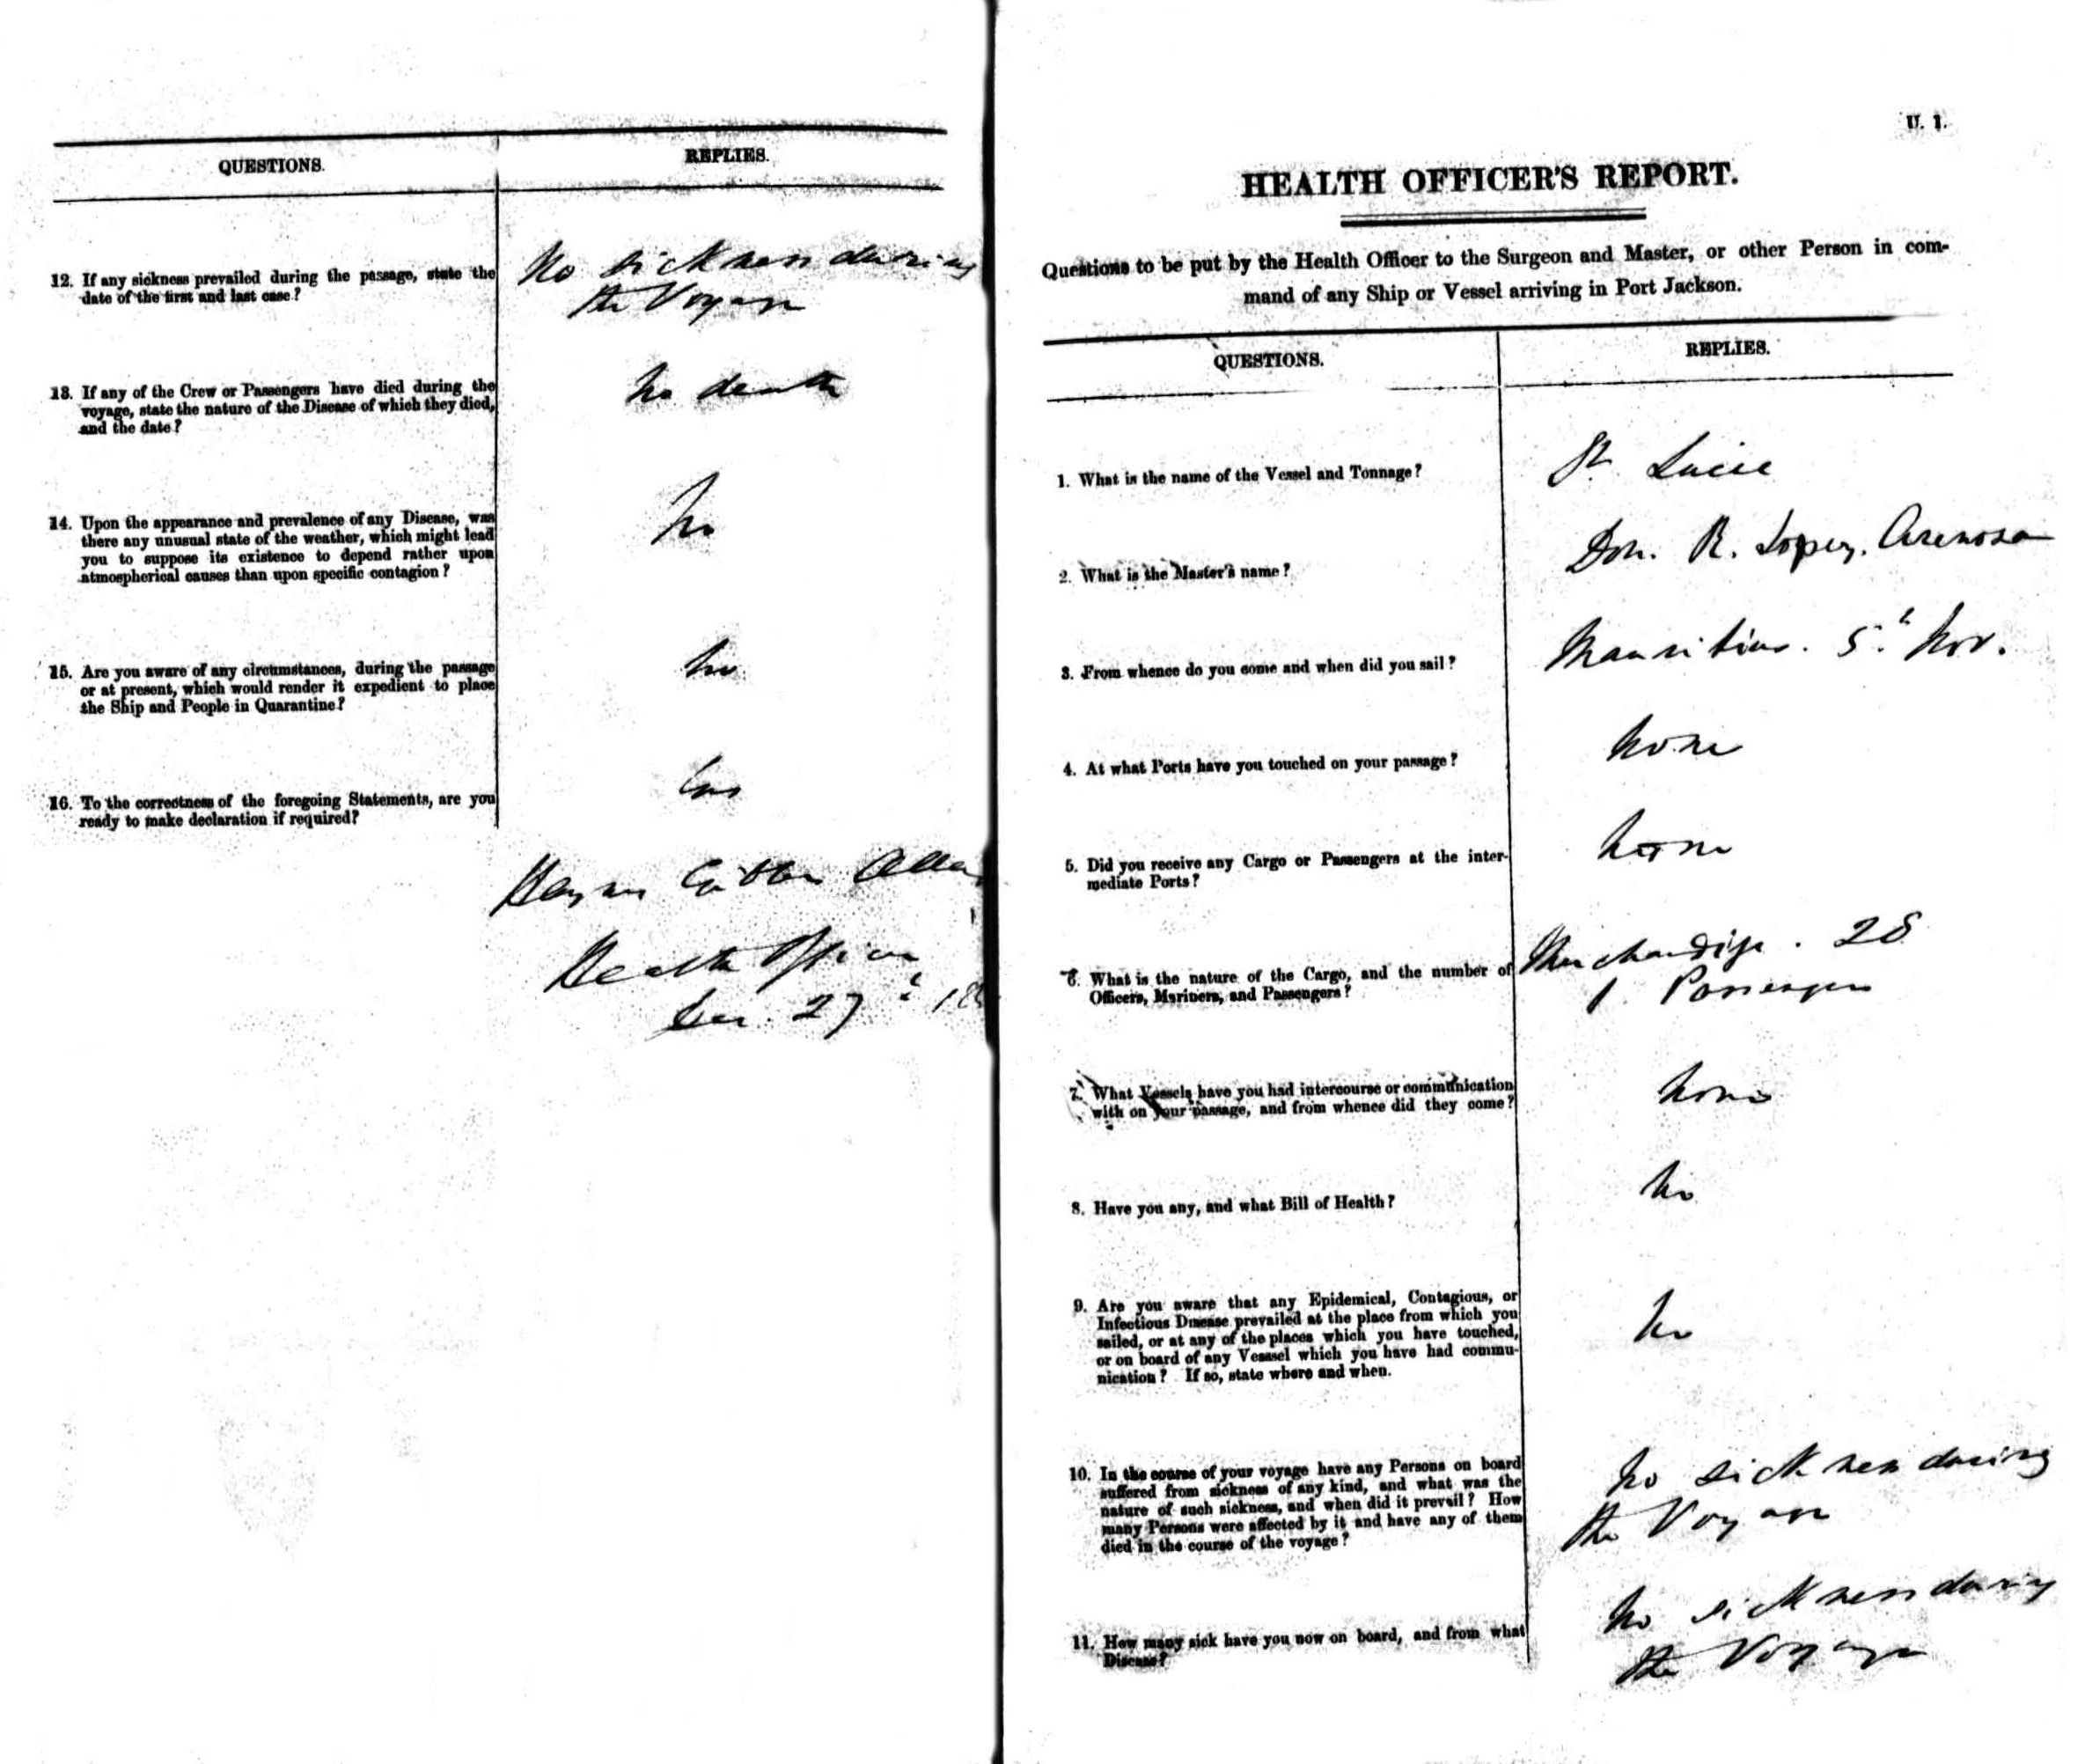 QUESTIONS.
REPLIES.
12. If any sickness prevailed during the passage, state the
date of the first and last case?
No sickness during
the Voyage
13. If any of the Crew or Passengers have died during the
voyage, state the nature of the Disease of which they died,
and the date?
No death
14. Upon the appearance and prevalence of any Disease, was
there any unusual state of the weather, which might lead
you to suppose its existence to depend rather upon
atmospherical causes than upon specific contagion?
No
15. Are you aware of any circumstances, during the passage
or at present, which would render it expedient to place
the Ship and People in Quarantine?
No
16. To the correctness of the foregoing Statements, are you
ready to make declaration if required?
Yes
Haynes Gibbes Alle
Health Officer
Dec. 27th 18
U. 1.
HEALTH OFFICER'S REPORT.
Questions to be put by the Health Officer to the Surgeon and Master, or other Person in com-
mand of any Ship or Vessel arriving in Port Jackson.
QUESTIONS.
REPLIES.
1. What is the name of the Vessel and Tonnage?
St. Lucie
2. What is the Master's name?
Don. R. Lopez. Arenosa
3. From whence do you come and when did you sail?
Mauritius. 5.th Nov.
4. At what Ports have you touched on your passage?
None
5. Did you receive any Cargo or Passengers at the inter-
mediate Ports?
None
6. What is the nature of the Cargo, and the number of
Officers, Mariners, and Passengers?
Merchandise. 28
1 Passenger
7. What Vessels have you had intercourse or communication
with on your passage, and from whence did they come?
None
8. Have you any, and what Bill of Health?
No
9. Are you aware that any Epidemical, Contagious, or
Infectious Disease prevailed at the place from which you
sailed, or at any of the places which you have touched,
or on board of any Veassel which you have had commu-
nication? If so, state where and when.
No
10. In the course of your voyage have any Persons on board
suffered from sickness of any kind, and what was the
nature of such sickness, and when did it prevail? How
many Persons were affected by it and have any of them
died in the course of the voyage?
No sickness during
the Voyage
11. How many sick have you now on board, and from what
Disease?
No sickness during
the Voyage